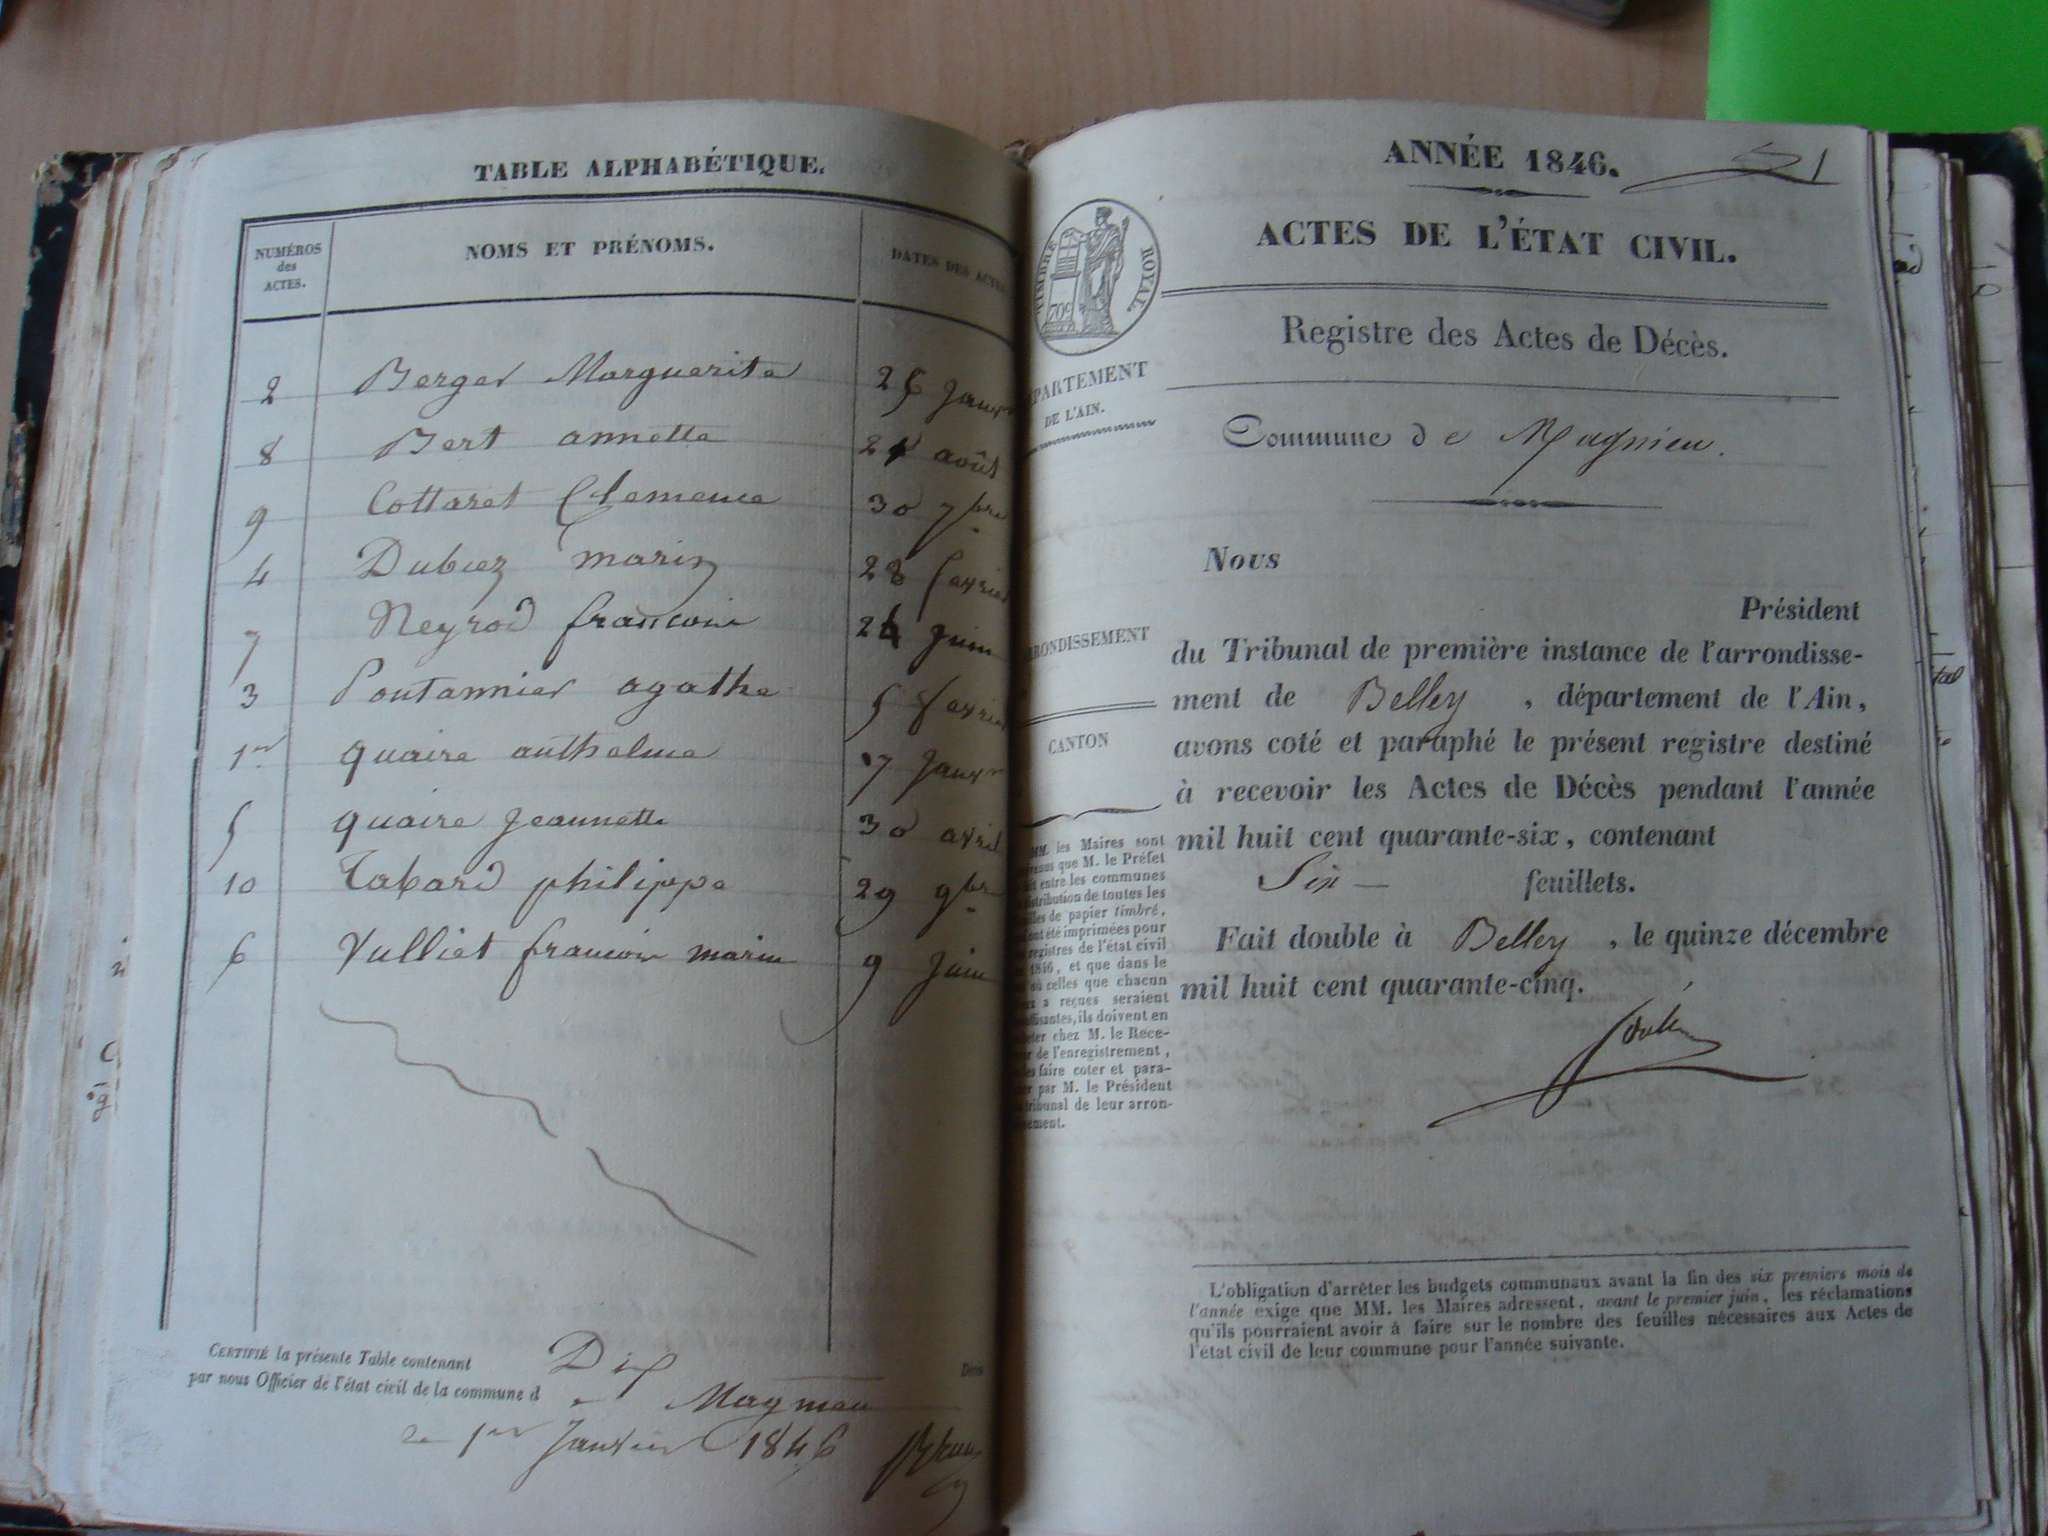 TABLE ALPHABÉTIQUE.
NUMÉROS
des
ACTES.
NOMS ET PRÉNOMS.
DATES DES ACTES
2 Berger Marguerite 25 Janvr
8 Bert annette 21 août
9 Cottaret Clemence 30 7bre
4 Dubiez marie 28 fevrier
7 Neyrod francois 24 Juin
3 Pontannier agathe 5 fevrier
1er quaire anthelme 17 Janvr
5 quaire Jeannette 30 avril
10 Tabard philippe 29 9bre
6 Vulliet francois marie 9 Juin
CERTIFIÉ la présente Table contenant Dix
par nous Officier de l'état civil de la commune d e Magnieu
le 1er Janvier 1846
ANNÉE 1846.
ACTES DE L'ÉTAT CIVIL.
TIMBRE ROYAL
70c
Registre des Actes de Décès.
PARTEMENT
DE L'AIN.
Commune de Magnieu.
Nous
Président
du Tribunal de première instance de l'arrondisse-
ment de Belley , département de l'Ain,
avons coté et paraphé le présent registre destiné
à recevoir les Actes de Décès pendant l'année
mil huit cent quarante-six, contenant
Six feuillets.
Fait double à Belley , le quinze décembre
mil huit cent quarante-cinq.
RONDISSEMENT
CANTON
MM. les Maires sont
venus que M. le Préfet
it entre les communes
istribution de toutes les
illes de papier timbré,
ont été imprimées pour
registres de l'état civil
1846, et que dans le
où celles que chacun
ux a reçues seraient
uffisantes, ils doivent en
eter chez M. le Rece-
ur de l'enregistrement,
es faire coter et para-
er par M. le Président
tribunal de leur arron-
sement.
L'obligation d'arrêter les budgets communaux avant la fin des six premiers mois de
l'année exige que MM. les Maires adressent, avant le premier juin, les réclamations
qu'ils pourraient avoir à faire sur le nombre des feuilles nécessaires aux Actes de
l'état civil de leur commune pour l'année suivante.